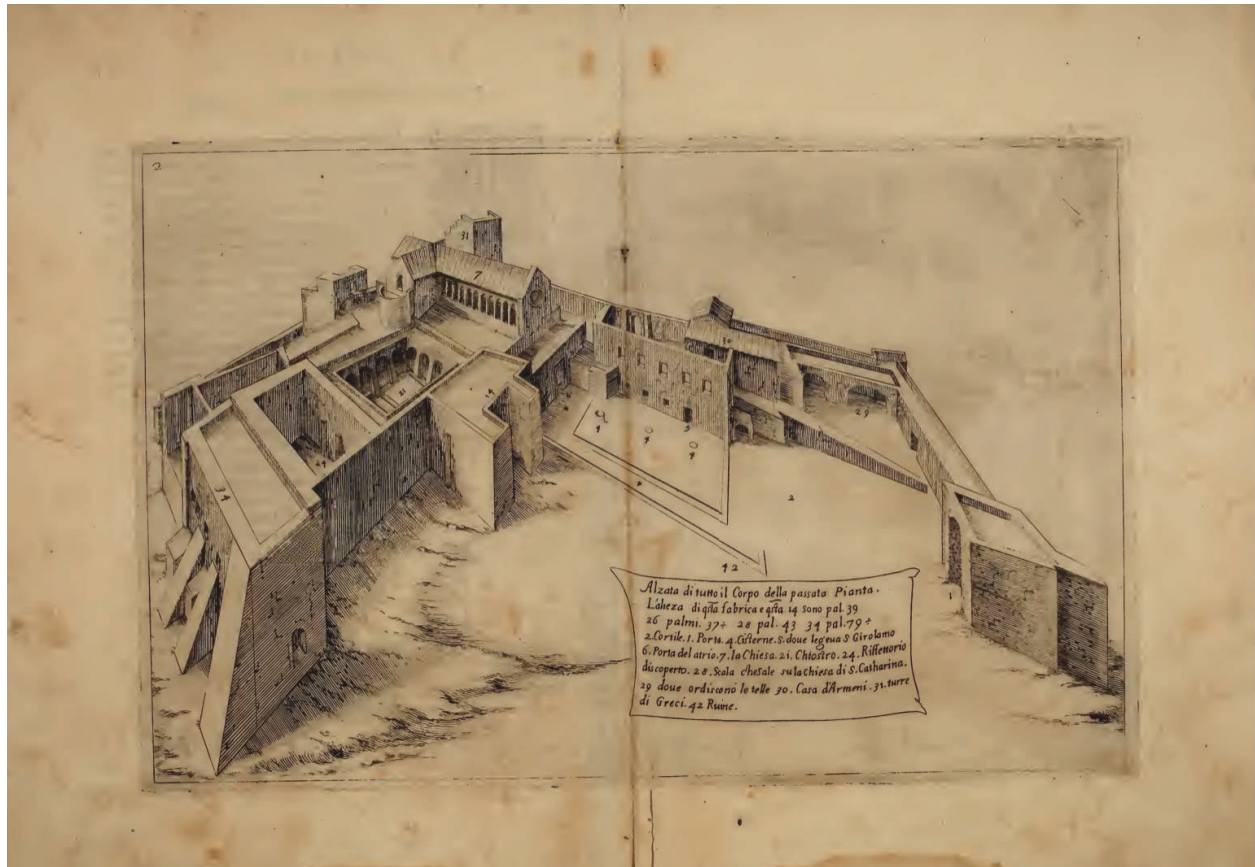 2
31
7
30
29
21
24
34
5
4
4
4
2
2
42
1
Alzata di tutto il Corpo della passata Pianta.
L'alteza di qsta fabrica e qsta 14 sono pal. 39
26 palmi. 37÷ 28 pal. 43 34 pal. 79÷
2. Cortile. 1. Porta. 4. Cisterne. 5. doue legeua S. Girolamo
6. Porta del atrio. 7. la Chiesa. 21. Chiostro. 24. Riffettorio
discoperto. 28. Scala che sale su la Chiesa di S. Catharina.
29 doue ordiscono le telle 30. Casa d'Armeni. 31. turre
di Greci. 42 Ruine.